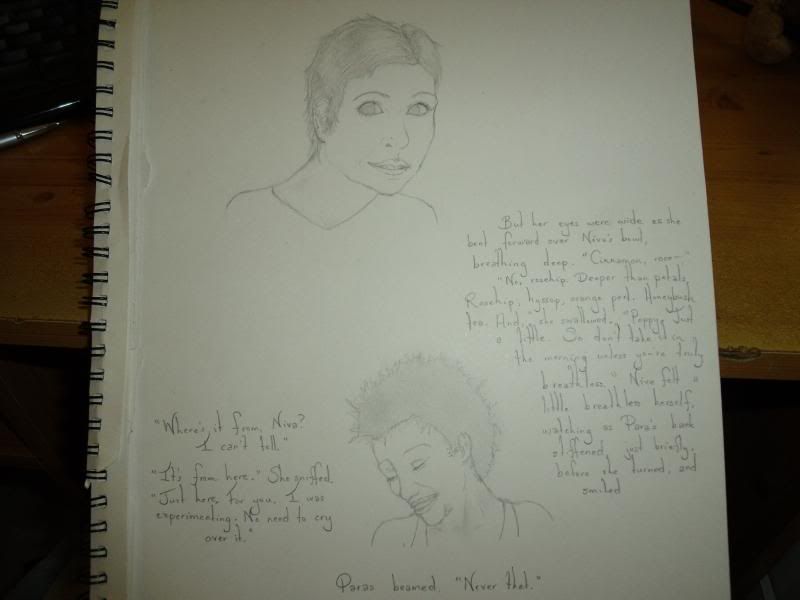 But her eyes were wide as she
bent forward over Niva's bowl,
breathing deep. "Cinnamon, rose–"
"No, rosehip. Deeper than petals.
Rosehip, hyssop, orange peel. Honeybush
tea. And," she swallowed, "Poppy. Just
a little. So don't take it in
the morning unless you're truly
breathless." Niva felt a
little breathless herself,
watching as Para's back
stiffened, just briefly,
before she turned, and
smiled
"Where's it from, Niva?
I can't tell."
"It's from here." She sniffed.
"Just here, for you. I was
experimenting. No need to cry
over it."
Paras beamed. "Never that."